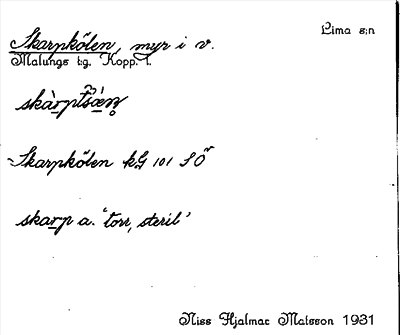 Lima s:n
Skarpkölen, myr i v.
Malungs t.g. Kopp. l.
Skarpkölen kG 101 S Ö
skarp a. 'torr, steril'
Niss Hjalmar Matsson 1931